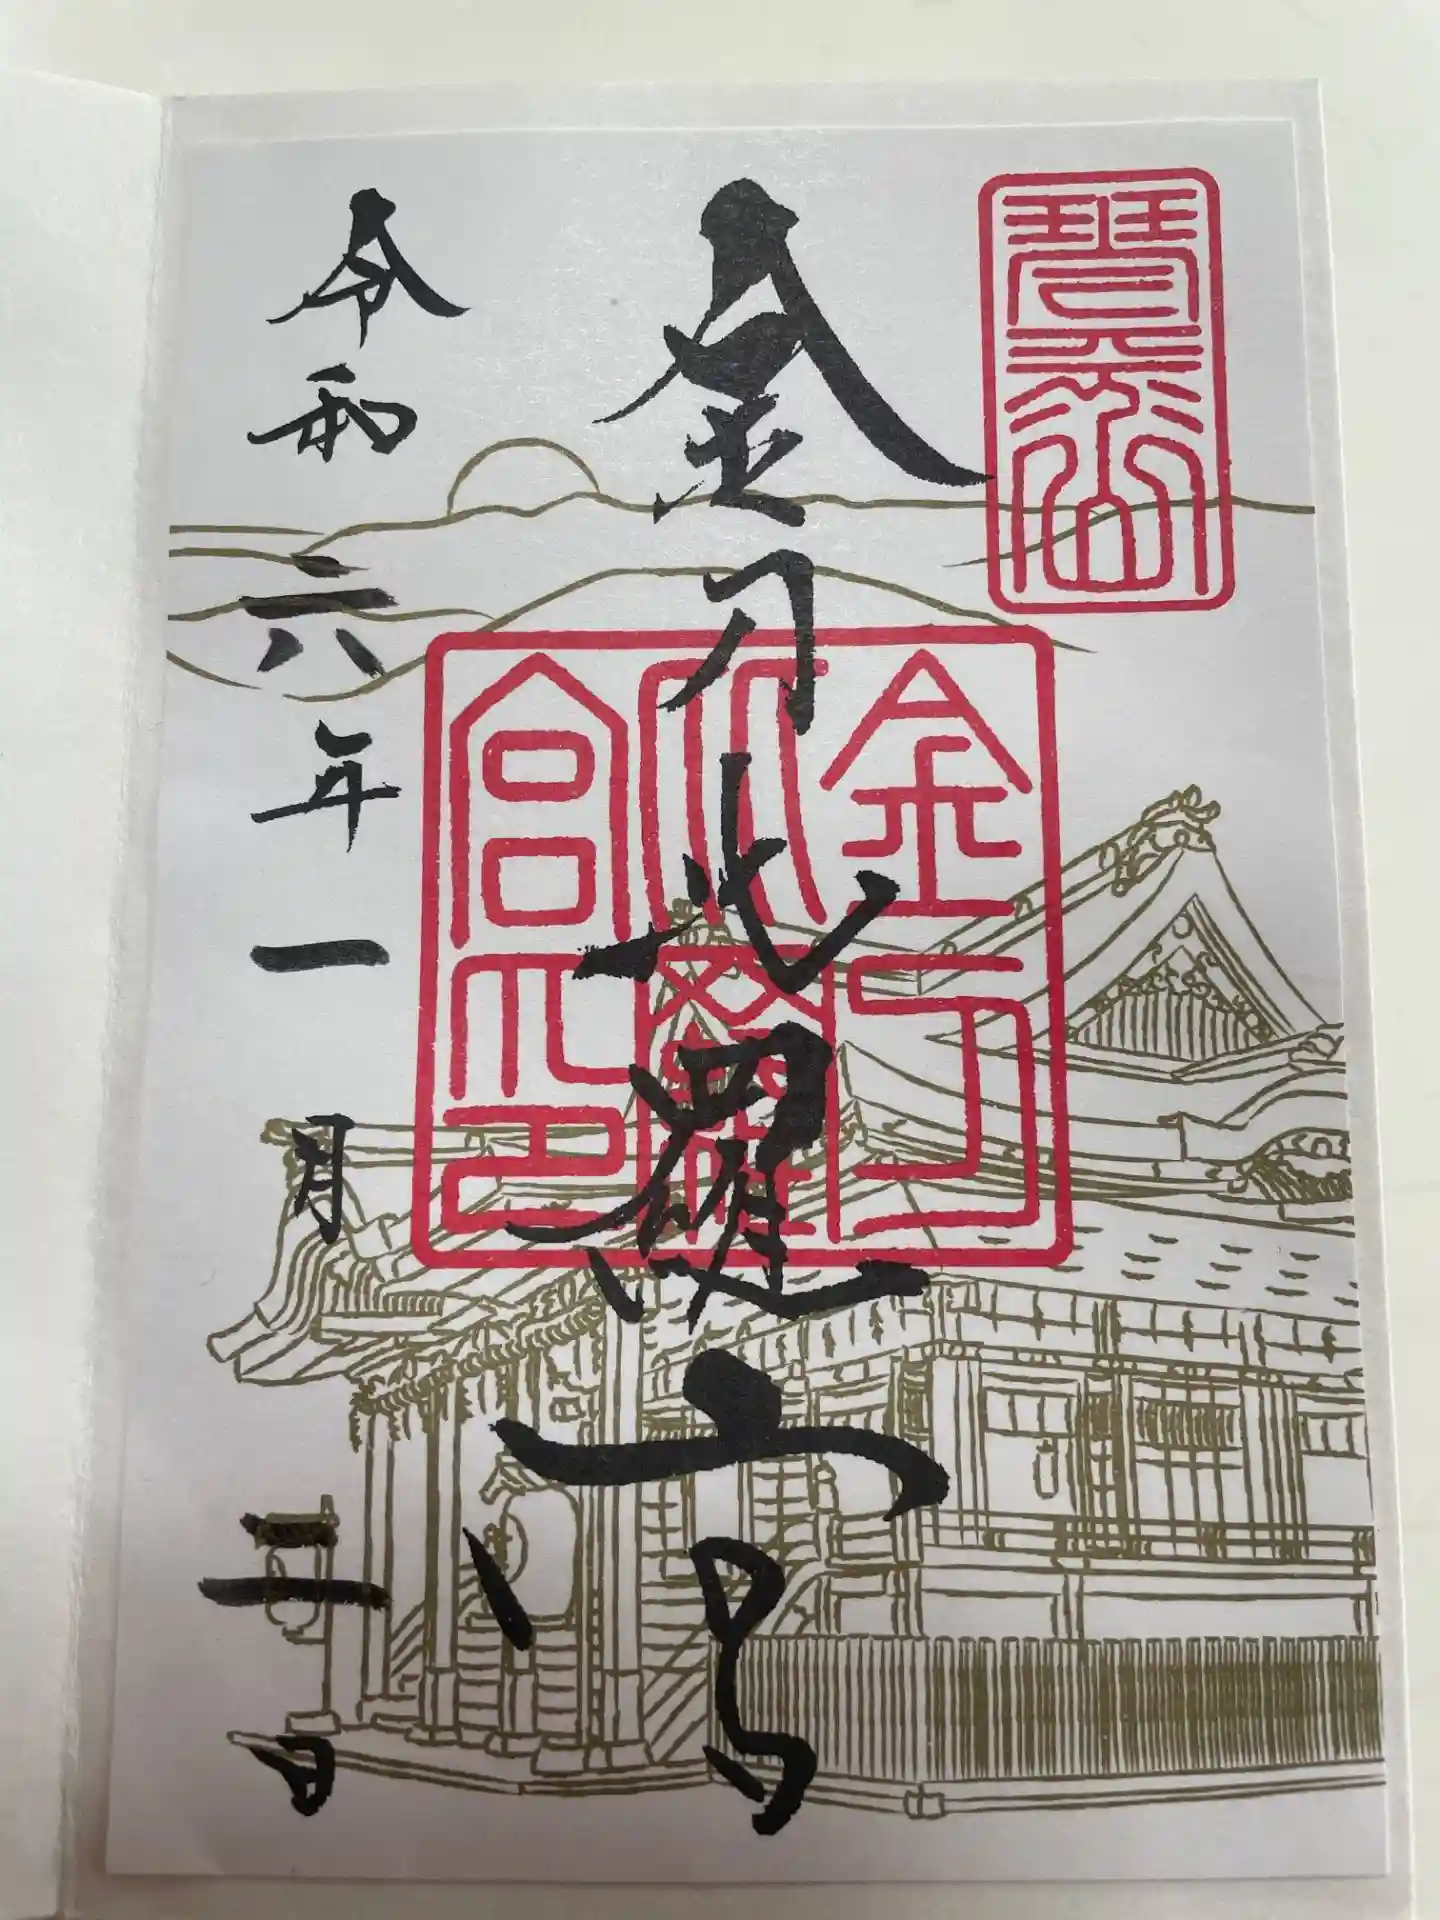 琴平山
金刀比羅宮
金刀
比羅
宮印
令和六年一月二日